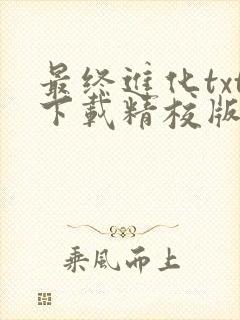 最终进化txt
下载精校版
乘风而上